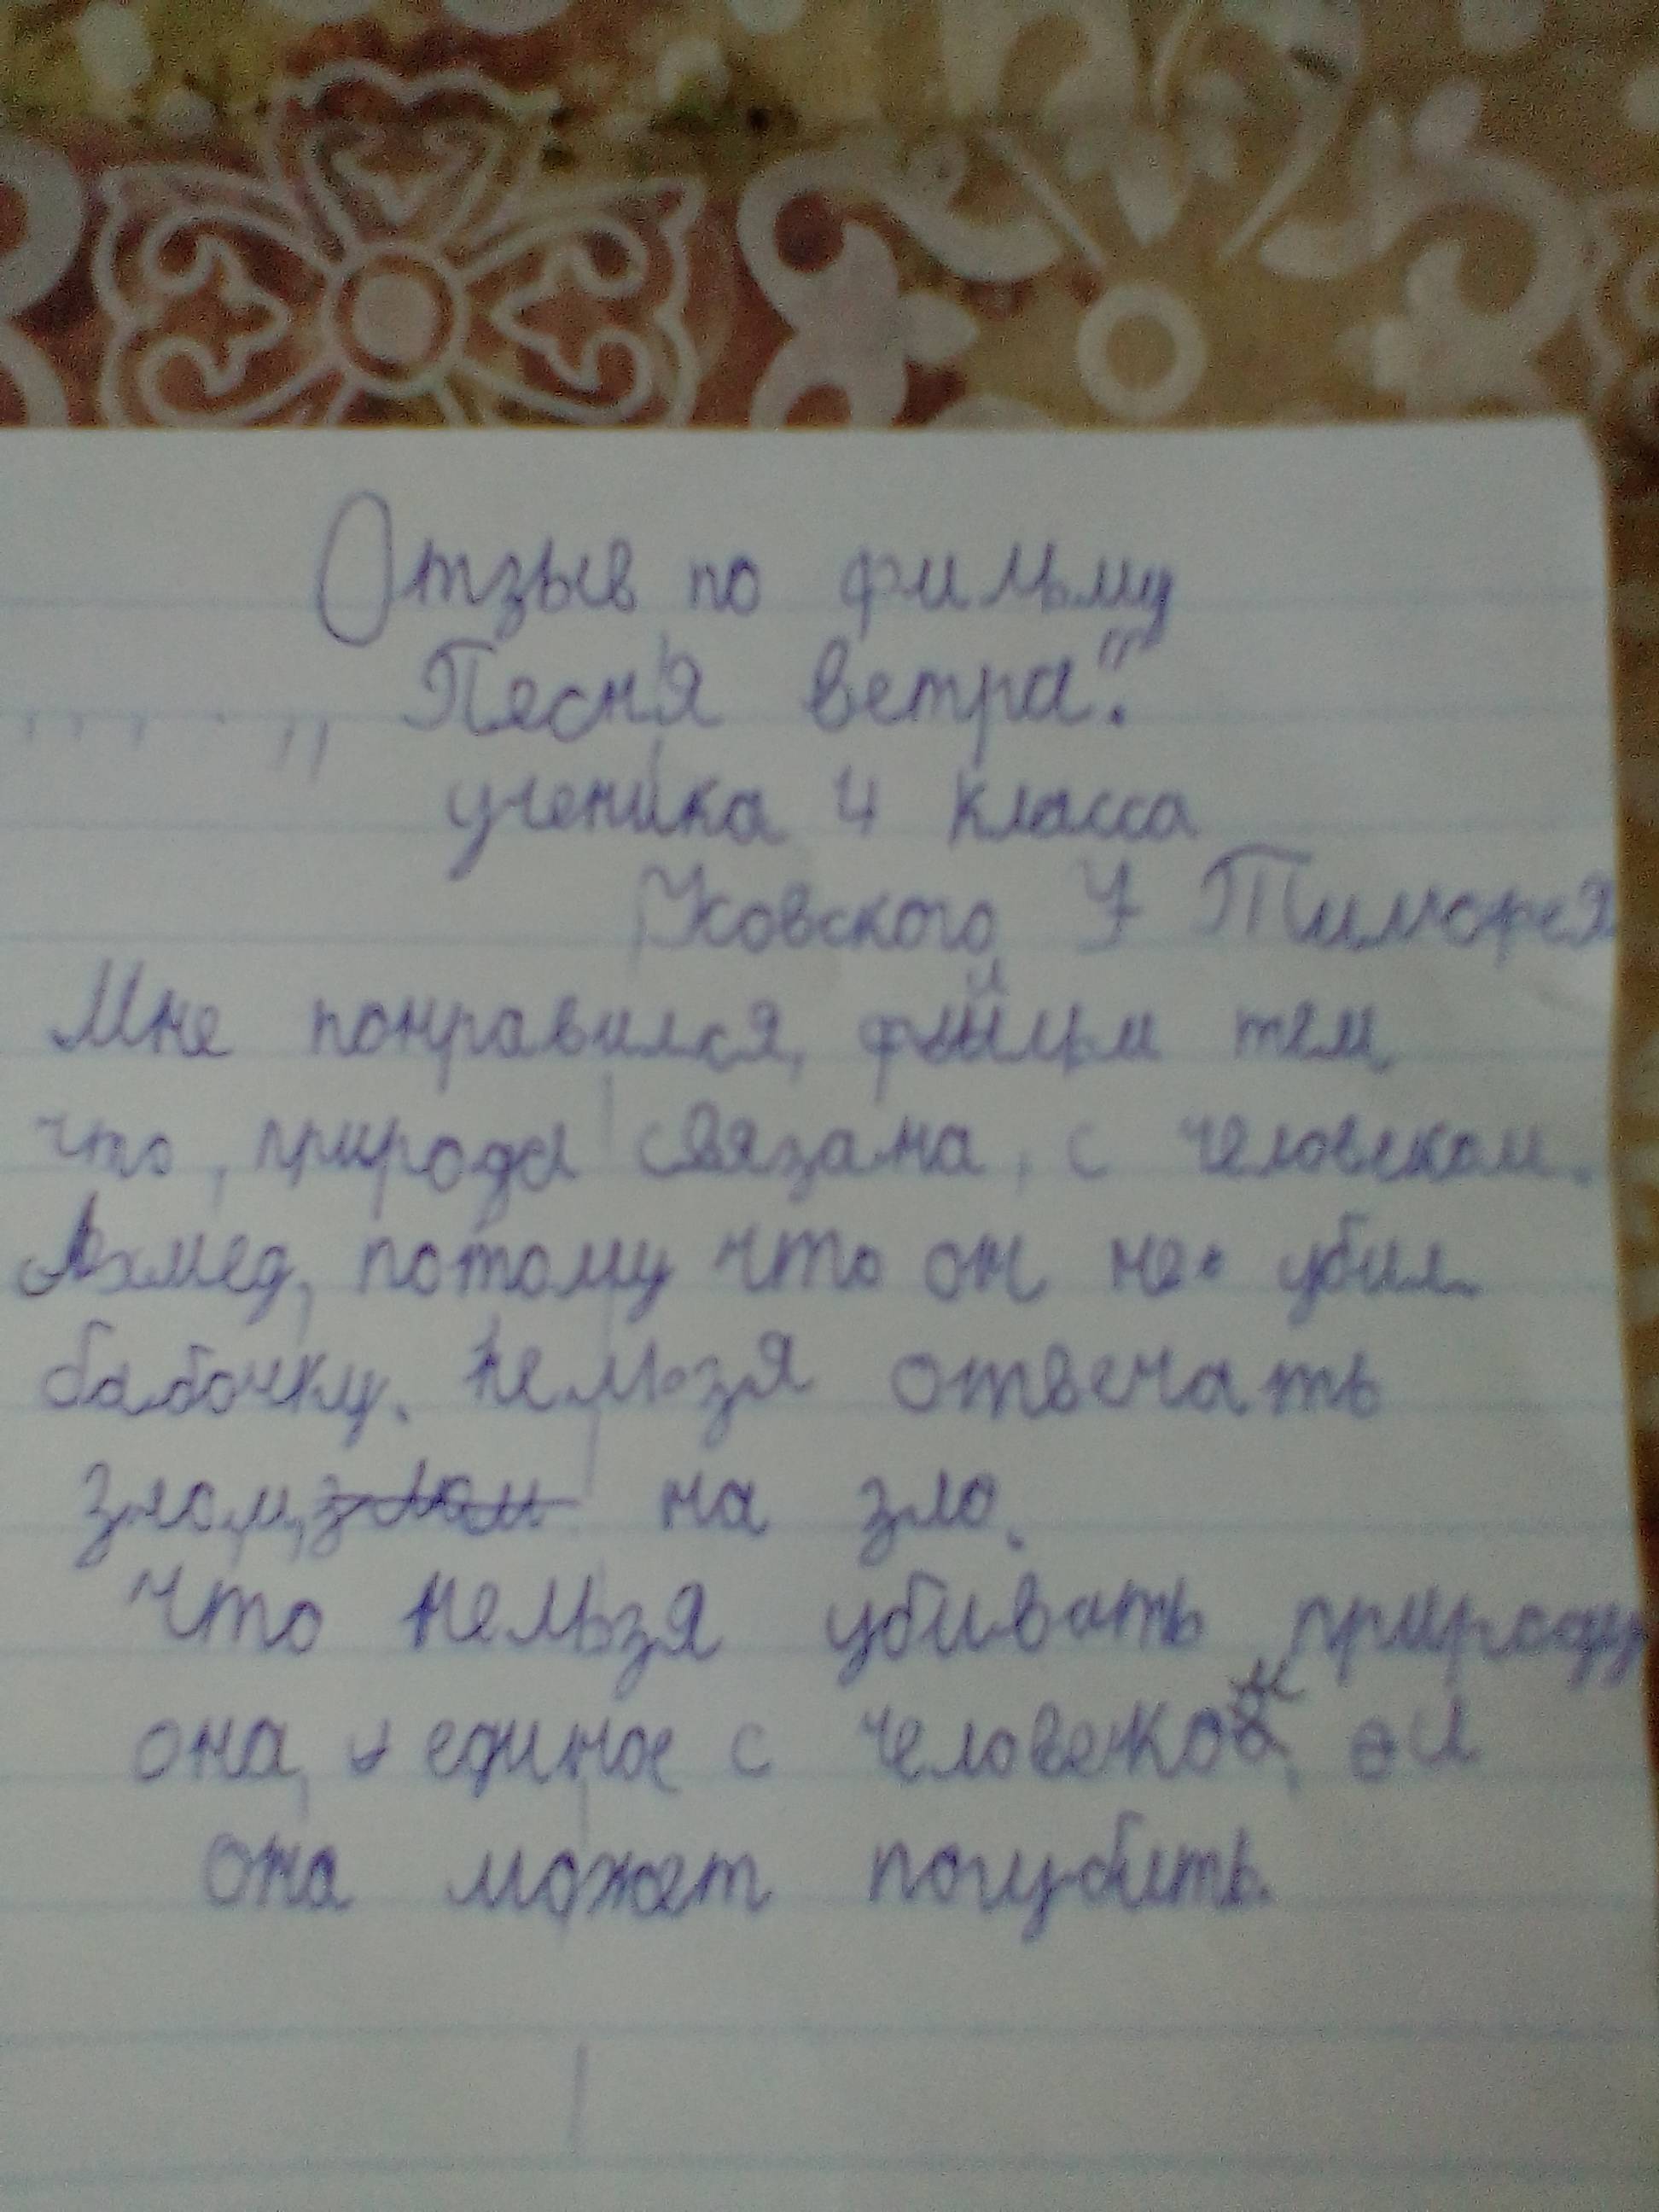 Отзыв по фильму
„ Песня ветра".
ученика 4 класса
Тимофея
Мне понравился, фильм тем
что, природа связана, с человеком.
Ахмед, потому что он не убил
бабочку. Нельзя отвечать
злом, злом на зло.
Что нельзя убивать природу
она, единое с человеком,
она может погубить.